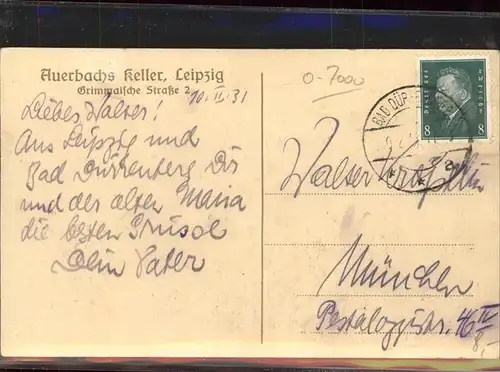 Auerbachs Keller, Leipzig
Grimmaische Straße 2
10. II. 31
Liebes Walter!
Aus Leipzig und
Bad Dürrenberg Dir
und der alten Maria
die besten Grüsse
Dein Vater
0-7000
BAD DÜR
DEUTSCHES REICH
8 8
Walter
München
Pestalozzistr. 46 IV